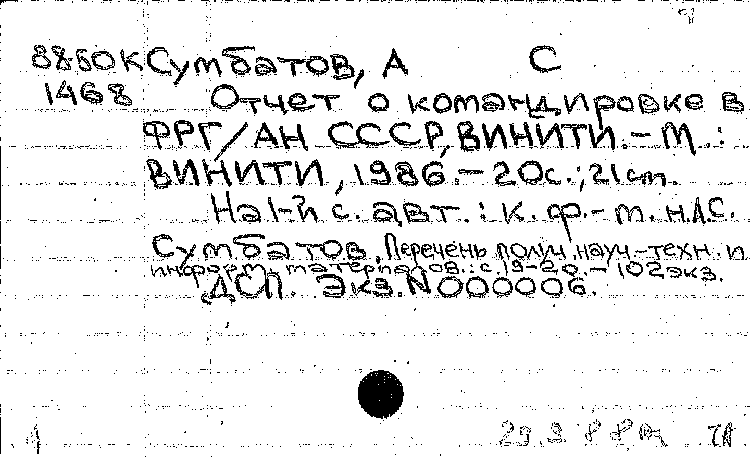 8850К Сумбатов, А С
1468 Отчет о командировке в
ФРГ/АН СССР, ВИНИТИ.-М.:
ВИНИТИ, 1986.-20с.; 21cm.
На 1-й с. авт.: к.ф.-м.н. А.С.
Сумбатов. Перечень получ. науч.-техн. и
информ. материалов.: с.19-20.-102экз.
ДСП. Экз. N 000006.